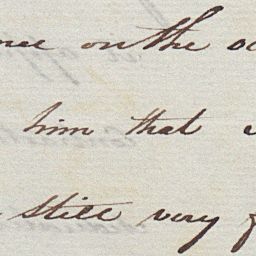 on the
him that
still very